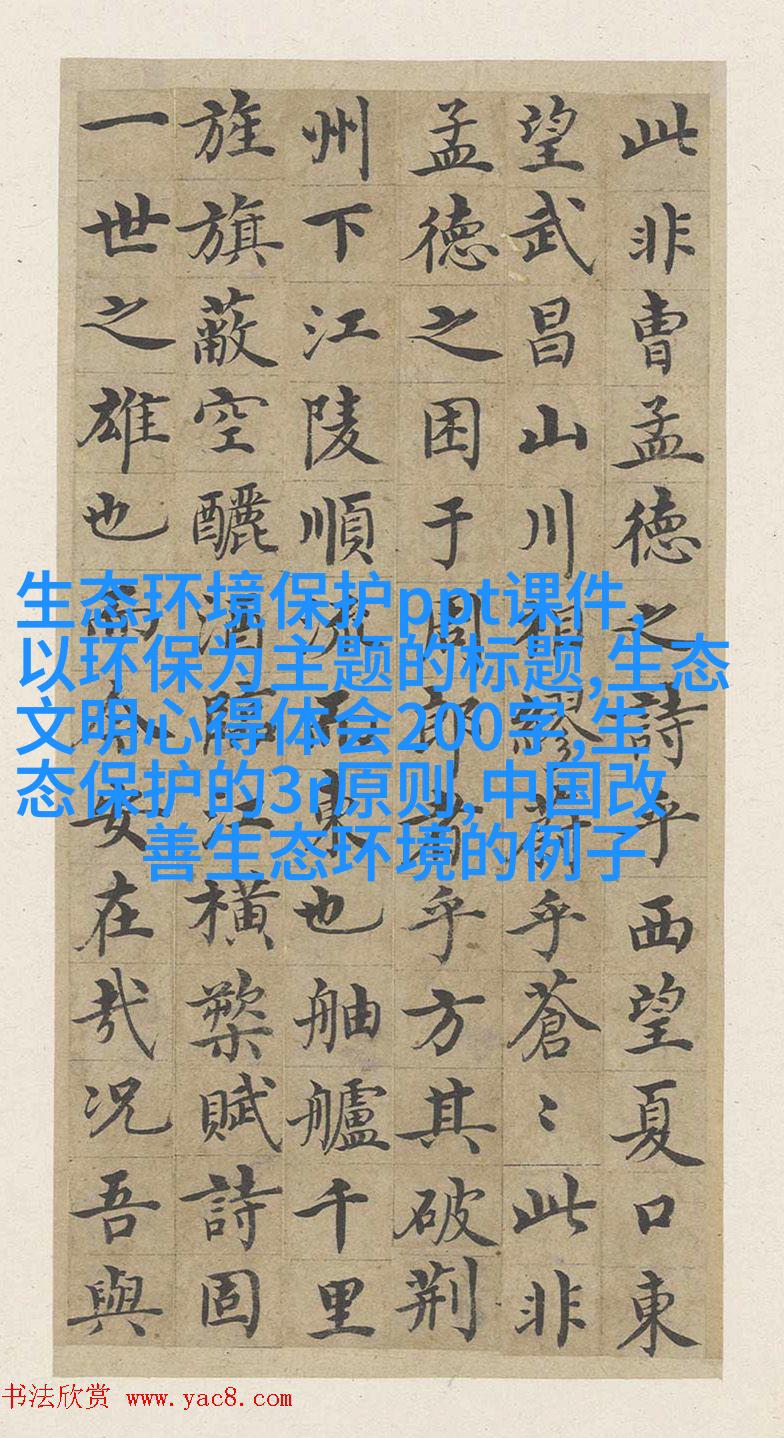 此非曹孟德之詩乎西望夏口東
望武昌山川相繆乎蒼〻此非
孟德之困于周郎者乎方其破荊
州下江陵順流而東也舳艫千里
旌旗蔽空釃酒臨江橫槊賦詩固
一世之雄也而今安在哉況吾與
生态环境保护ppt课件,
以环保为主题的标题,生态
文明心得体会200字,生
态保护的3r原则,中国改
善生态环境的例子
书法欣赏 www.yac8.com